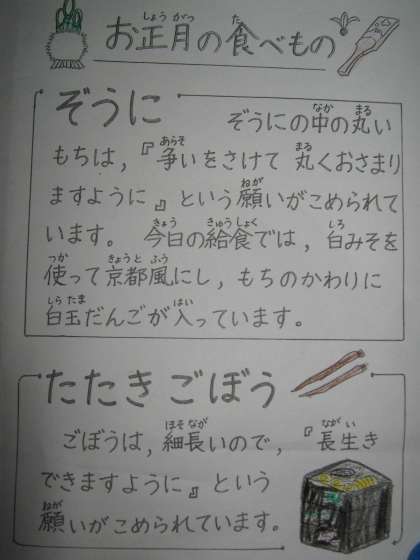 お正月の食べもの
ぞうに
ぞうにの中の丸い
もちは,『争いをさけて 丸くおさまり
ますように』という願いがこめられて
います。 今日の給食では, 白みそを
使って京都風にし, もちのかわりに
白玉だんごが入っています。
たたきごぼう
ごぼうは, 細長いので,『長生き
できますように』という
願いがこめられています。